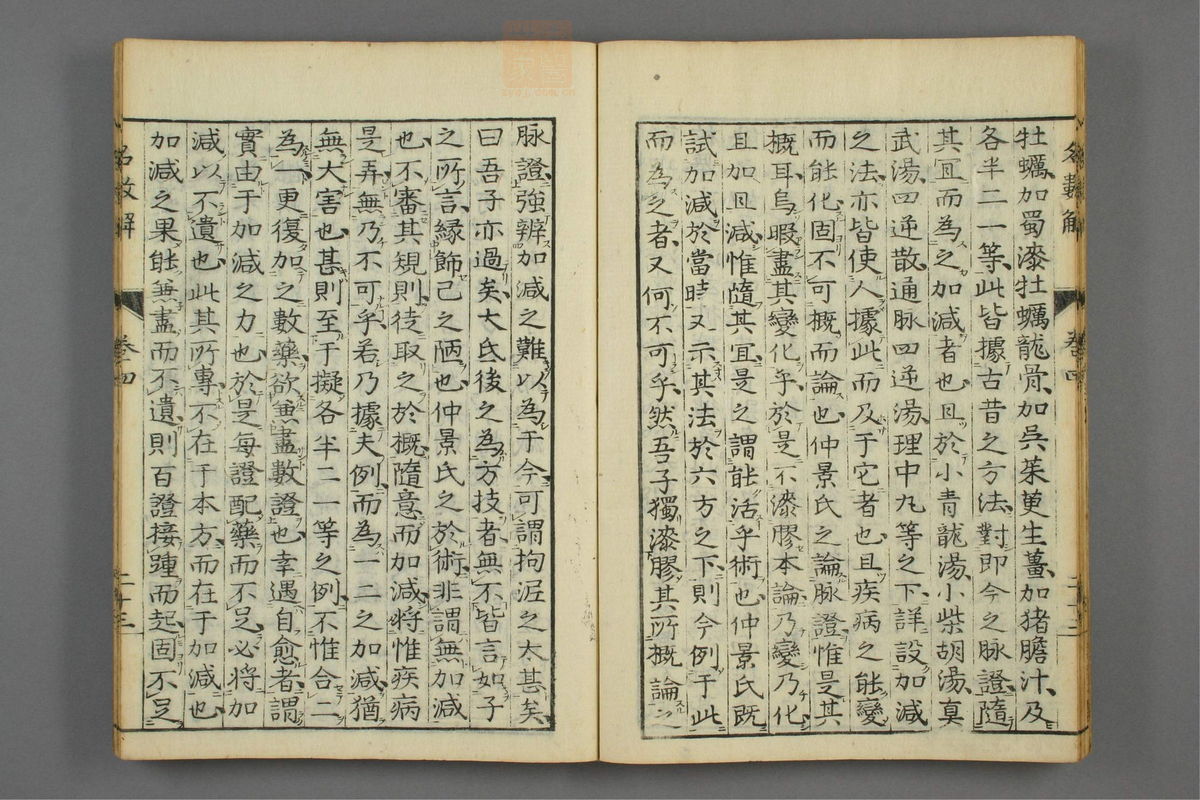 牡蠣加蜀漆牡蠣龍骨加吳茱萸生薑加猪膽汁及
各半二一等此皆據古昔之方法對即今之脉證隨
其宜而為之加減者也且於小青龍湯小柴胡湯真
武湯四逆散通脉四逆湯理中丸等之下詳設加減
之法亦皆使人據此而及于它者也且疾病之能變
而能化固不可概而論也仲景氏之論脉證惟是其
概耳烏暇盡其變化乎於是不漆膠本論乃變乃化
且加且減惟隨其宜是之謂能活乎術也仲景氏既
試加減於當時又示其法於六方之下則今例于此
而為之者又何不可乎然吾子獨漆膠其所概論之
脉證強辨加減之難以為于今可謂拘泥之太甚矣
曰吾子亦過矣大氐後之為方技者無不皆言如子
之所言緣飾己之陋也仲景氏之於術非謂無加減
也不審其規則徒取之於概隨意而加減將惟疾病
是弄無乃不可乎若乃據夫例而為一二之加減猶
無大害也甚則至于擬各半二一等之例不惟合二
為一更復加之數藥欲無盡數證也幸遇自愈者謂
實由于加減之力也於是每證配藥而不足必將加
減以不遺也此其所專不在于本方而在于加減也
加減之果能無盡而不遺則百證接踵而起固不足
名數解
卷四
二十三